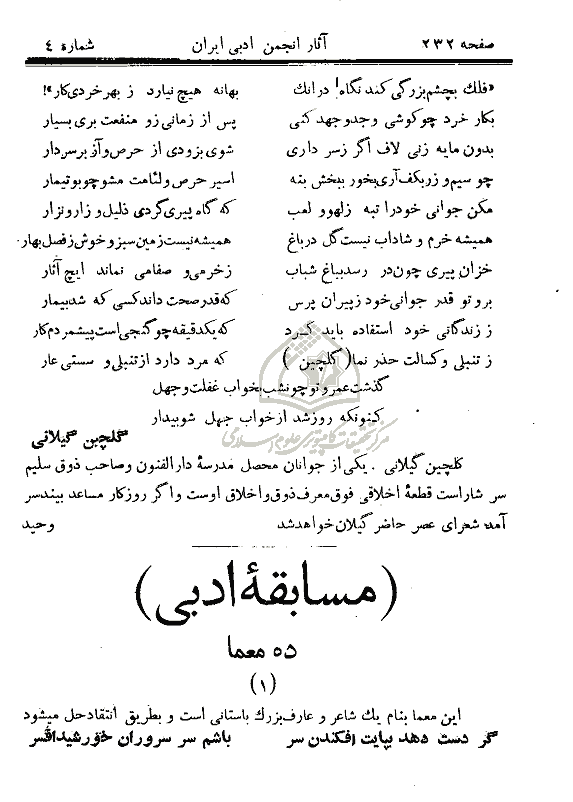 صفحه ٢٣٢ آثار انجمن ادبی ایران شماره ٤
«فلك بچشم بزرگی كند نگاه! درانك بهانه هیچ نیارد ز بهر خردی كار»!
بكار خرد چو كوشی و جد و جهد كنی پس از زمانی زو منفعت بری بسیار
بدون مایه زنی لاف اگر ز سر داری شوی بزودی از حرص و آز بر سر دار
چو سیم و زر بكف آری بخور ببخش بنه اسیر حرص و لئامت مشو چو بوتیمار
مكن جوانی خودرا تبه ز لهو و لعب كه گاه پیری گردی ذلیل و زار و نزار
همیشه خرم و شاداب نیست گل در باغ همیشه نیست زمین سبز و خوش ز فصل بهار
خزان پیری چون در رسد بباغ شباب ز خرمی و صفا می نماند ایچ آثار
برو تو قدر جوانی خود ز پیران پرس كه قدر صحت داند كسی كه شد بیمار
ز زندگانی خود استفاده باید كرد كه یكدقیقه چو گنجی است پیش مردم كار
ز تنبلی و كسالت حذر نما ( گلچین ) كه مرد دارد از تنبلی و سستی عار
گذشت عمر و تو چونشب بخواب غفلت و جهل
كنونكه روز شد از خواب جهل شو بیدار
گلچین گیلانی
مركز تحقیقات كامپیوتری علوم اسلامی
گلچین گیلانی . یكی از جوانان محصل مدرسه دارالفنون و صاحب ذوق سلیم
سر شار است قطعهٔ اخلاقی فوق معرف ذوق و اخلاق اوست و اگر روزكار مساعد بیند سر
آمد شعرای عصر حاضر گیلان خواهد شد وحید
(مسابقهٔ ادبی)
ده معما
(١)
این معما بنام یك شاعر و عارف بزرك باستانی است و بطریق انتقاد حل میشود
گر دست دهد بپایت افكندن سر باشم سر سروران خورشید افسر